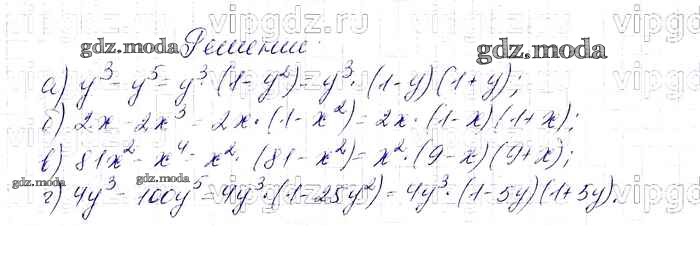 vipgdz.ru vipgdz.ru vipgdz
gdz.moda Решение: gdz.moda
а) y³ - y⁵ = y³·(1-y²) = y³·(1-y)(1+y);
б) 2x - 2x³ = 2x·(1-x²) = 2x·(1-x)(1+x);
в) 81x² - x⁴ = x²·(81-x²) = x²·(9-x)(9+x);
gdz.moda gdz.moda
г) 4y³ - 100y⁵ = 4y³·(1-25y²) = 4y³·(1-5y)(1+5y).